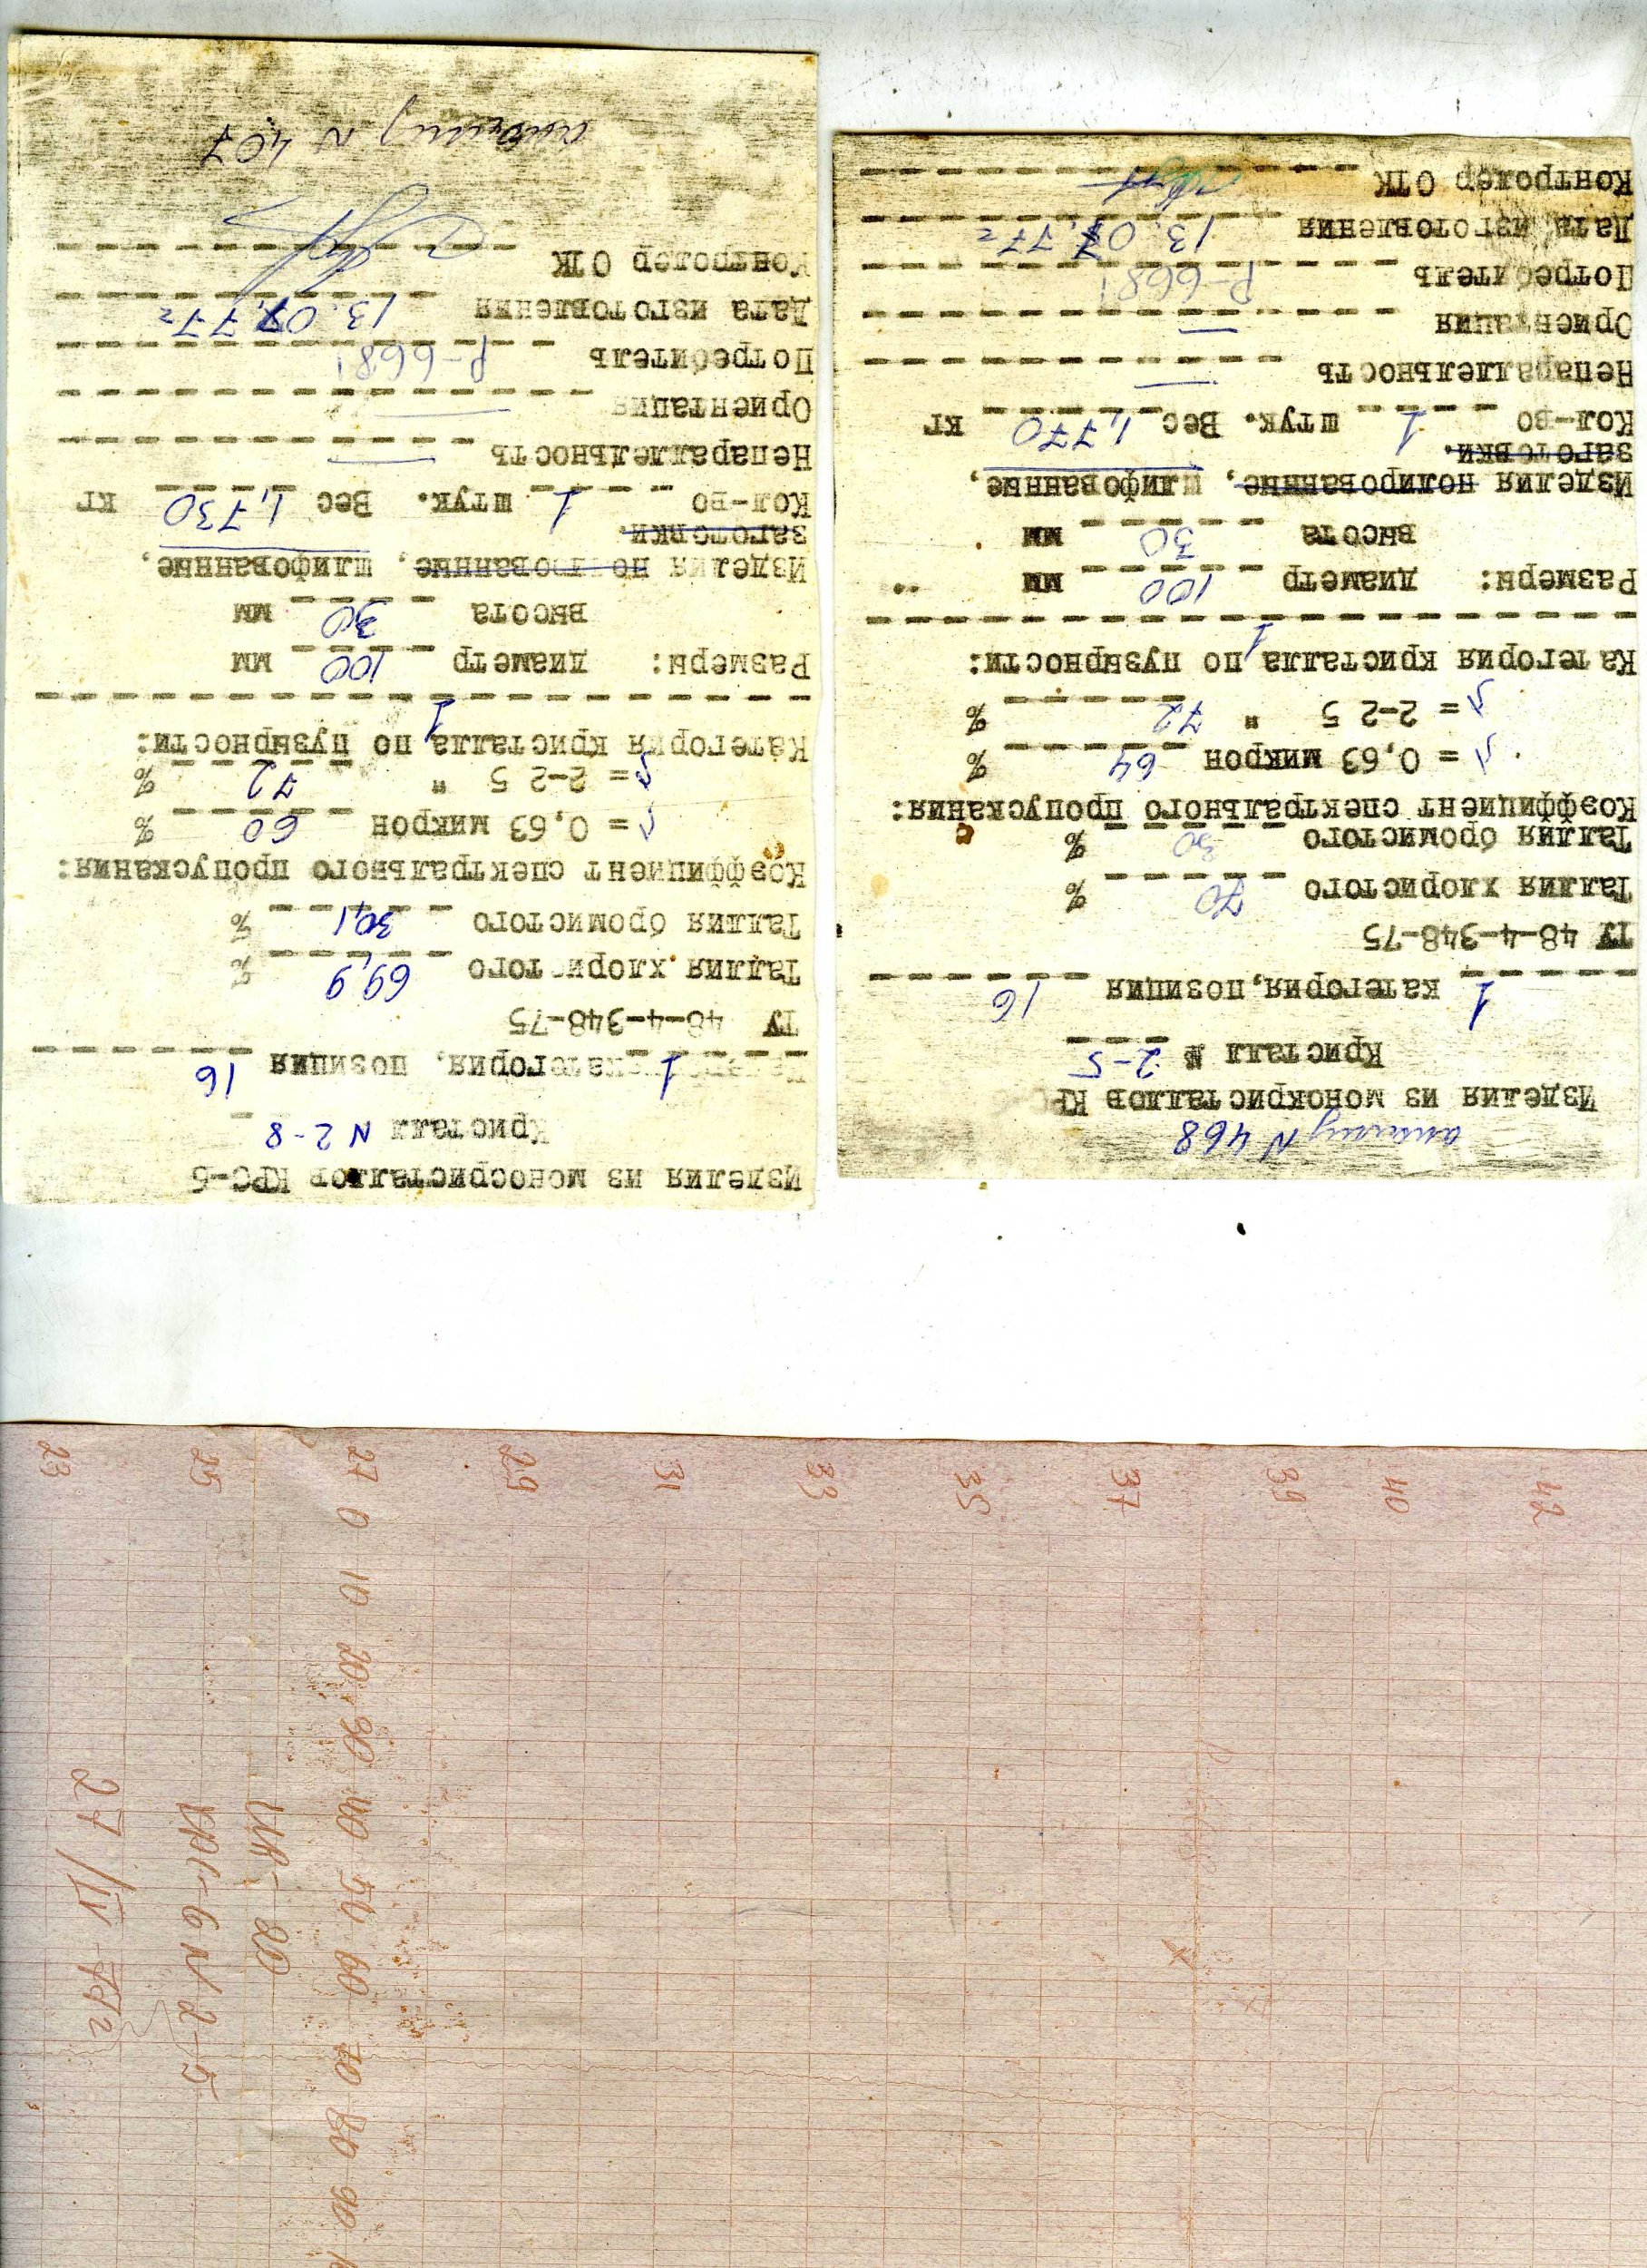 Изделия из монокристаллов КРС-6
Кристалл N 2-8
1 категория, позиция 16
ТУ 48-4-348-75
Таллия хлористого 69,9 %
Таллия бромистого 30,1 %
Коэффициент спектрального пропускания:
λ = 0,63 микрон 60 %
λ = 2-25 " 72 %
Категория кристалла по пузырности:
1
Размеры: диаметр 100 мм
высота 30 мм
Изделия полированные, шлифованные,
заготовки.
Кол-во 1 штук. Вес 1,730 кг
Непараллельность —
Ориентация —
Потребитель Р-6681
Дата изготовления 13.07.77г
Контролер ОТК
N 407
N 468
Изделия из монокристаллов КРС
Кристалл № 2-5
1 категория, позиция 16
ТУ 48-4-348-75
Таллия хлористого 70 %
Таллия бромистого 30 %
Коэффициент спектрального пропускания:
λ = 0,63 микрон 64 %
λ = 2-25 " 72 %
Категория кристалла по пузырности:
1
Размеры: диаметр 100 мм
высота 30 мм
Изделия полированные, шлифованные,
заготовки.
Кол-во 1 штук. Вес 1,770 кг
Непараллельность —
Ориентация —
Потребитель Р-6681
Дата изготовления 13.07.77г
Контролер ОТК
23 25 27 29 31 33 35 37 39 40 42
0 10 20 30 40 50 60 70 80 90
ИКС-20
КРС-6 N 2-5
27/IV